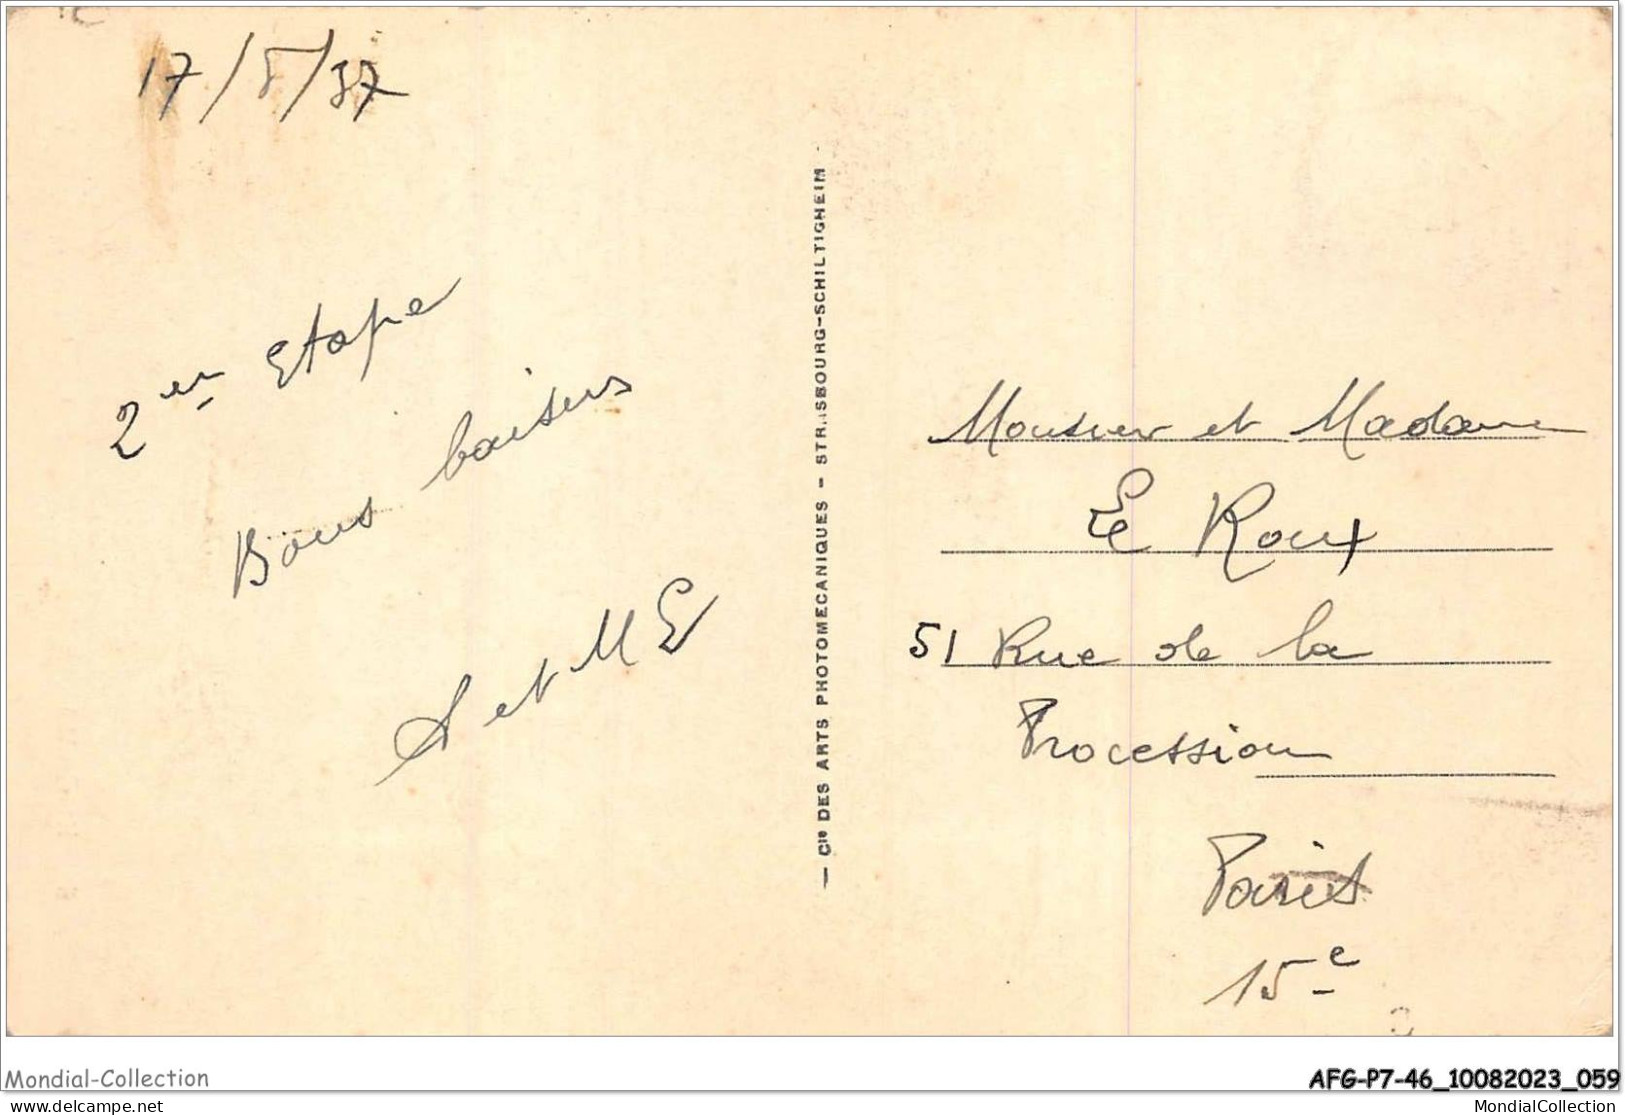 17/8/37
2er Etape
Bons baisers
A et M E
— Cie DES ARTS PHOTOMECANIQUES – STRASBOURG-SCHILTIGHEIM
Monsieur et Madame
Le Roux
51 Rue de la
Procession
Paris
15e
Mondial-Collection
AFG-P7-46_10082023_059
mondial-collection.delcampe.net
MondialCollection